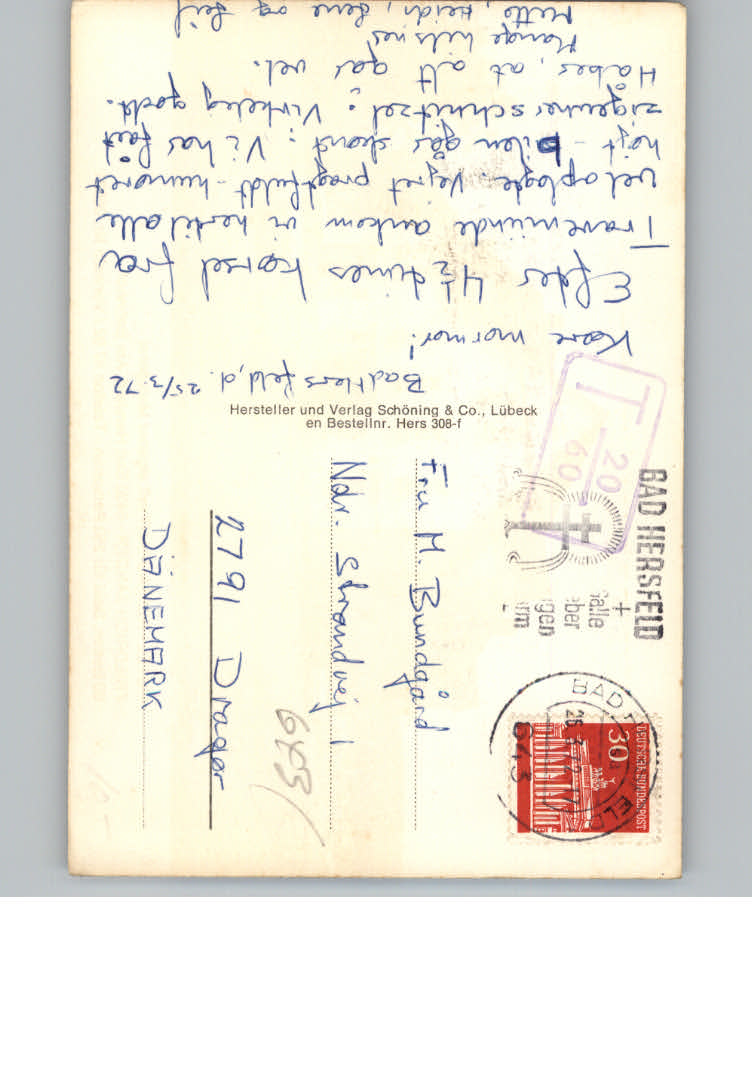 Bad Hersfeld, d. 25/3.72
Kære mormor!
Efter 4½ times kørsel fra
Travemünde ankom vi hertil alle
veloplagte. Vejret pragtfuldt - humøret
højt - bilen går stront: Vi har fået
zigeunerschnitzel: Virkelig godt.
Håber, at alt går vel.
Mange hilsner
Mette, Heidi, Lene og Leif
Hersteller und Verlag Schöning & Co., Lübeck
en Bestellnr. Hers 308-f
Fru M. Bundgård
Ndr. Strandvej 1
2791 Dragør
DÄNEMARK
643
T 20
60
BAD HERSFELD
BAD H
ELD
643
30
DEUTSCHE BUNDESPOST